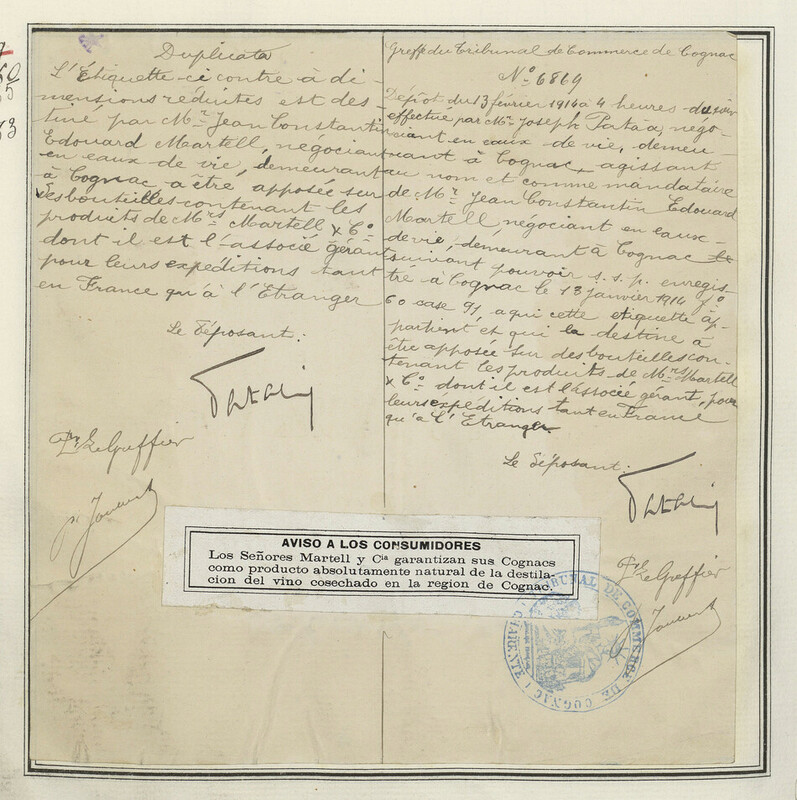 Duplicata
L'Étiquette ci contre à di-
mensions réduites est des-
tiné par Mr. Jean Constantin
Edouard Martell, négociant
en eaux de vie, demeurant
à Cognac, a être apposée sur
des bouteilles contenant les
produits de Mrs Martell & Co
dont il est l'associé gérant
pour leurs expéditions tant
en France qu'à l'Etranger
Le Déposant:
Pr Le Greffier
Greffe du Tribunal de Commerce de Cognac
No 6869
Dépôt du 13 février 1914 à 4 heures du soir
effectué par Mr. Joseph Pataa, négo-
ciant en eaux de vie, demeu-
rant à Cognac, agissant
au nom et comme mandataire
de Mr. Jean Constantin Edouard
Martell négociant en eaux-
de vie, demeurant à Cognac
suivant pouvoir s.s.p. enregis-
tré à Cognac le 13 janvier 1914 fo
60 case 91, a qui cette etiquette ap-
partient et qui la destine à
être apposée sur des bouteilles con-
tenant les produits de Mrs Martell
& Co dont il est l'associé gérant, pour
leurs expéditions tant en France
qu'à l'Etranger.
Le Déposant:
Pr Le Greffier
AVISO A LOS CONSUMIDORES
Los Señores Martell y Cia garantizan sus Cognacs
como producto absolutamente natural de la destila-
cion del vino cosechado en la region de Cognac.
TRIBUNAL DE COMMERCE DE COGNAC (CHARENTE)